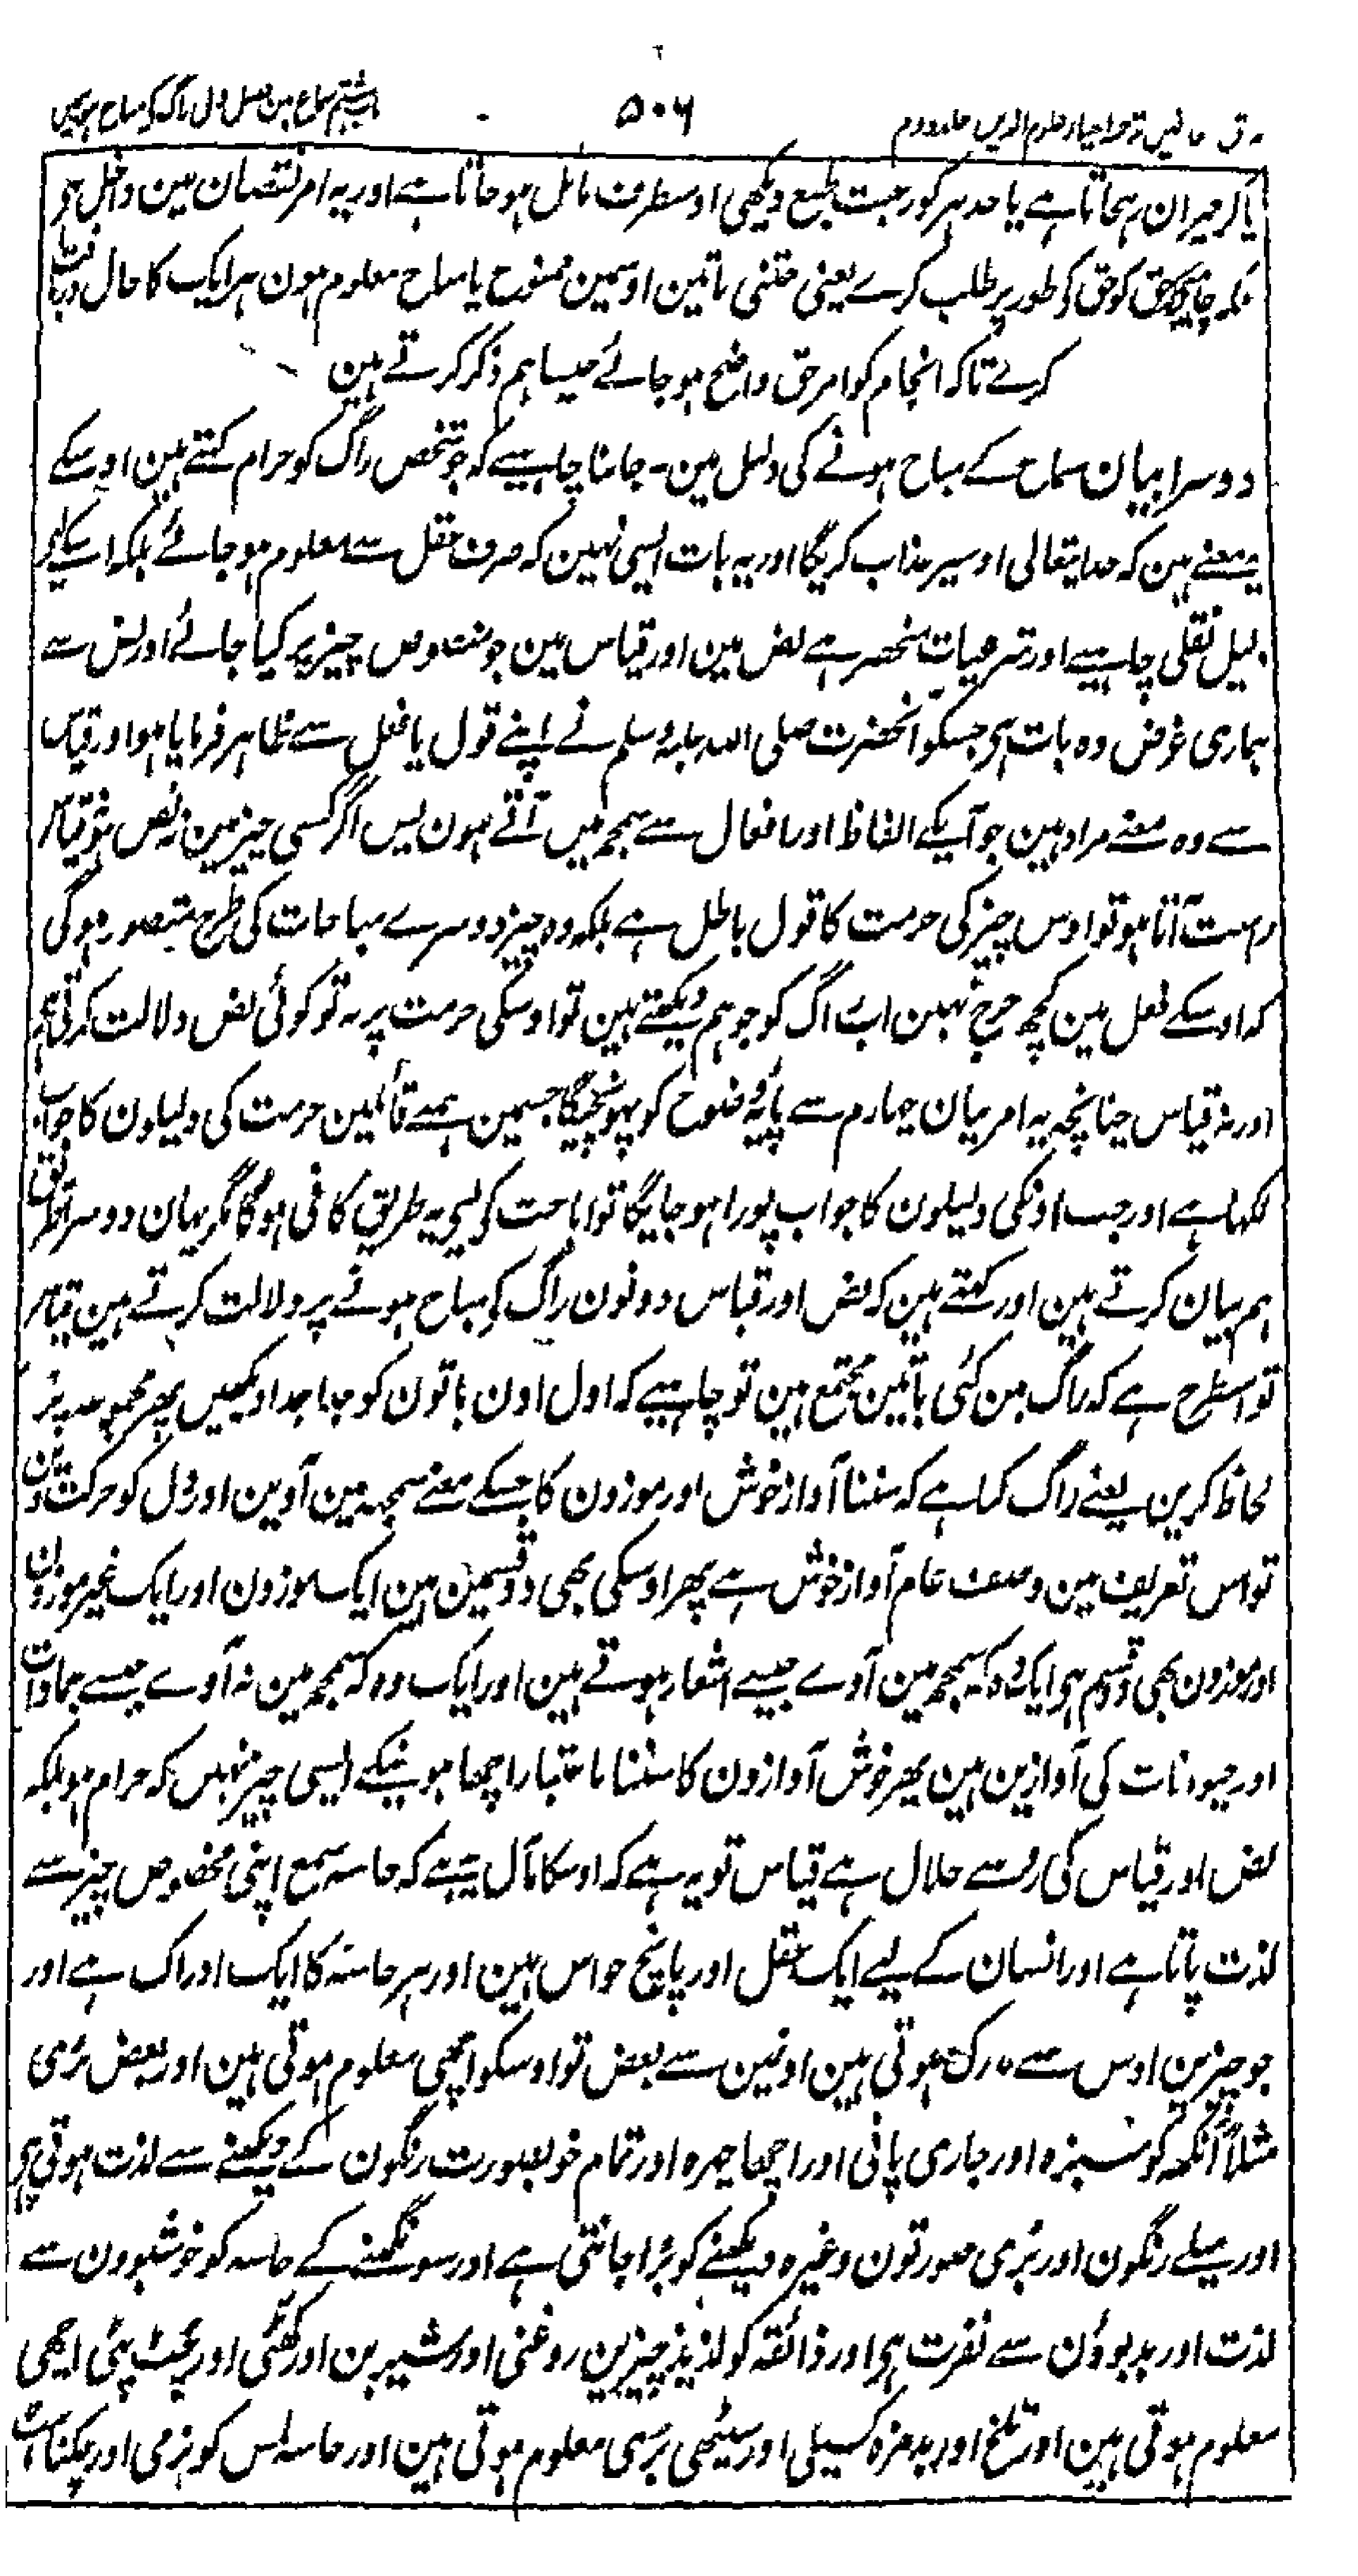 مذاق العارفین ترجمہ احیاء علوم الدین جلد دوم
۵۰۶
باب ہشتم سماع میں فصل اول راگ کی مباح ہونیمیں
یا کر حیران رہجاتا ہے یا جدہر کو رغبت طبع دیکھی اوسطرف مائل ہو جاتا ہے اور یہ امر نقصان مین داخل ہی
بلکہ چاہیے حق کو حق کی طور پر طلب کرے یعنی جتنی باتین اوسمین ممنوع یا مباح معلوم ہون ہر ایک کا حال دریافت
کرے تاکہ انجام کو امر حق واضح ہو جائے جیسا ہم ذکر کرتے ہین
دوسرا بیان سماع کے مباح ہونے کی دلیل مین ۔ جاننا چاہیے کہ جو شخص راگ کو حرام کہتے ہین اوسکے
یہ معنے ہین کہ خدایتعالی اوسپر عذاب کریگا اور یہ بات ایسی نہین کہ صرف عقل سے معلوم ہو جائے بلکہ اسکے لیے
دلیل نقلی چاہیے اور شرعیات منحصر ہے نص مین اور قیاس مین جو منصوص چیز پر کیا جائے اور نص سے
ہماری غرض وہ بات ہی جسکو آنحضرت صلی اللہ علیہ وسلم نے اپنے قول یا فعل سے ظاہر فرمایا ہو اور قیاس
سے وہ معنے مراد ہین جو آپکے الفاظ اور افعال سے سمجھ میں آتے ہون پس اگر کسی چیز مین نہ نص ہو نہ قیاس
درست آتا ہو تو اوس چیز کی حرمت کا قول باطل ہے بلکہ وہ چیز دوسرے مباحات کی طرح متصور ہو گی
کہ اوسکے فعل مین کچھ حرج نہین اب راگ کو جو ہم دیکھتے ہین تو اوسکی حرمت پر نہ تو کوئی نص دلالت کرتی ہی
اور نہ قیاس چنانچہ یہ امر بیان چہارم سے پایۂ وضوح کو پہونچیگا جسمین ہمنے قائلین حرمت کی دلیلون کا جواب
لکھا ہے اور جب اونکی دلیلون کا جواب پورا ہو جایگا تو اباحت کی لیے یہ طریق کافی ہوگا مگر یہان دوسرا طریق
ہم بیان کرتے ہین اور کہتے ہین کہ نص اور قیاس دونون راگ کی مباح ہونے پر دلالت کرتے ہین قیاس
تو اسطرح ہے کہ راگ مین کئی باتین مجتمع ہین تو چاہیے کہ اول اون باتون کو جدا جدا دیکھیں پھر مجموعہ پر
لحاظ کرین یعنے راگ کیا ہے کہ سننا آواز خوش اور موزون کا جسکے معنے سمجھ مین آوین اور دل کو حرکت دین
تو اس تعریف مین وصف عام آواز خوش ہے پھر اوسکی بھی دو قسمین ہین ایک موزون اور ایک غیر موزون
اور موزون بھی دو قسم ہی ایک وہ کہ سمجھ مین آوے جیسے اشعار ہوتے ہین اور ایک وہ کہ سمجھ مین نہ آوے جیسے جمادات
اور حیوانات کی آوازین ہین پھر خوش آوازون کا سننا باعتبار اچھا ہونیکے ایسی چیز نہیں کہ حرام ہو بلکہ
نص اور قیاس کی رو سے حلال ہے قیاس تو یہ ہے کہ اوسکا مآل یہ ہے کہ حاسہ سمع اپنی مخصوص چیز سے
لذت پاتا ہے اور انسان کے لیے ایک عقل اور پانچ حواس ہین اور ہر حاسہ کا ایک ادراک ہے اور
جو چیزین اوس سے مدرک ہوتی ہین اونمین سے بعض تو اوسکو اچھی معلوم ہوتی ہین اور بعض بُری
مثلاً آنکھ کو سبزہ اور جاری پانی اور اچھا چہرہ اور تمام خوبصورت رنگون کے دیکھنے سے لذت ہوتی ہی
اور میلے رنگون اور بُری صورتون وغیرہ دیکھنے کو بُرا جانتی ہے اور سونگھنے کے حاسہ کو خوشبوون سے
لذت اور بدبوؤن سے نفرت ہی اور ذائقہ کو لذیذ چیزین روغنی اور شیرین اور کھٹی اور چٹ پٹی اچھی
معلوم ہوتی ہین اور تلخ اور بدمزہ کسیلی اور سیٹھی بری معلوم ہوتی ہین اور حاسہ لمس کو نرمی اور چکناہٹ